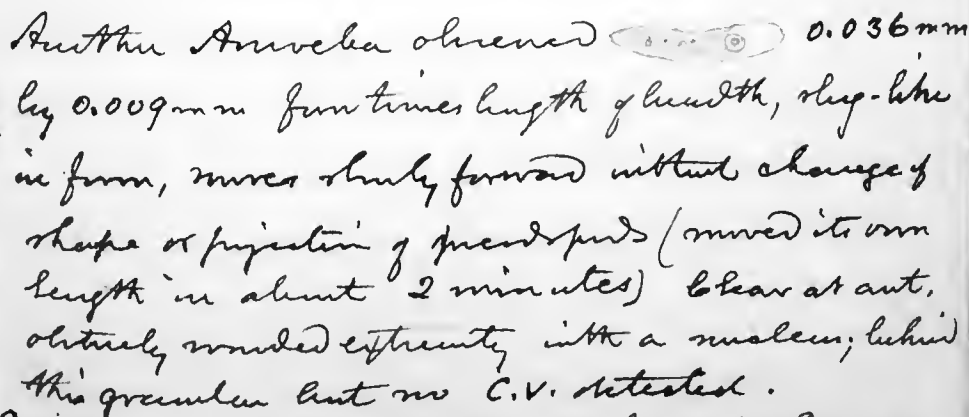 Another Amoeba observed 0.036mm
by 0.009mm four times length of breadth, slug-like
in form, moves slowly forward without change of
shape or projection of pseudopods (moved its own
length in about 2 minutes) Clear at ant.
obtusely rounded extremity with a nucleus; behind
this granular but no C.V. detected.